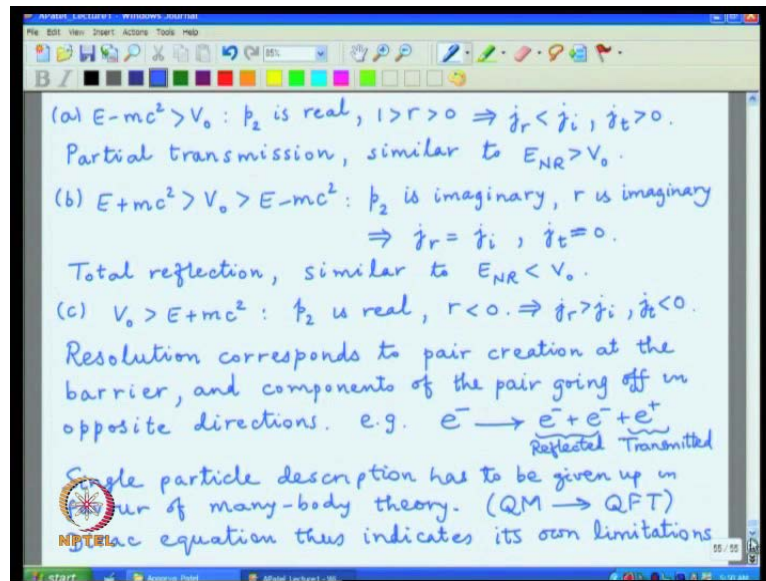 APatel_Lecture1 - Windows Journal
File Edit View Insert Actions Tools Help
85%
B I
(a) E-mc² > V₀ : p₂ is real, 1>r>0 ⇒ j_r < j_i , j_t>0.
Partial transmission, similar to E_NR > V₀.
(b) E+mc² > V₀ > E-mc² : p₂ is imaginary, r is imaginary
⇒ j_r = j_i , j_t = 0.
Total reflection, similar to E_NR < V₀.
(c) V₀ > E+mc² : p₂ is real, r<0. ⇒ j_r>j_i , j_t<0.
Resolution corresponds to pair creation at the
barrier, and components of the pair going off in
opposite directions. e.g. e⁻ ⟶ e⁻ + e⁻ + e⁺
Reflected Transmitted
Single particle description has to be given up in
favour of many-body theory. (QM ⟶ QFT)
Dirac equation thus indicates its own limitations
NPTEL
55/55
start Apoorva Patel APatel_Lecture1 - Wi... 5:30 AM